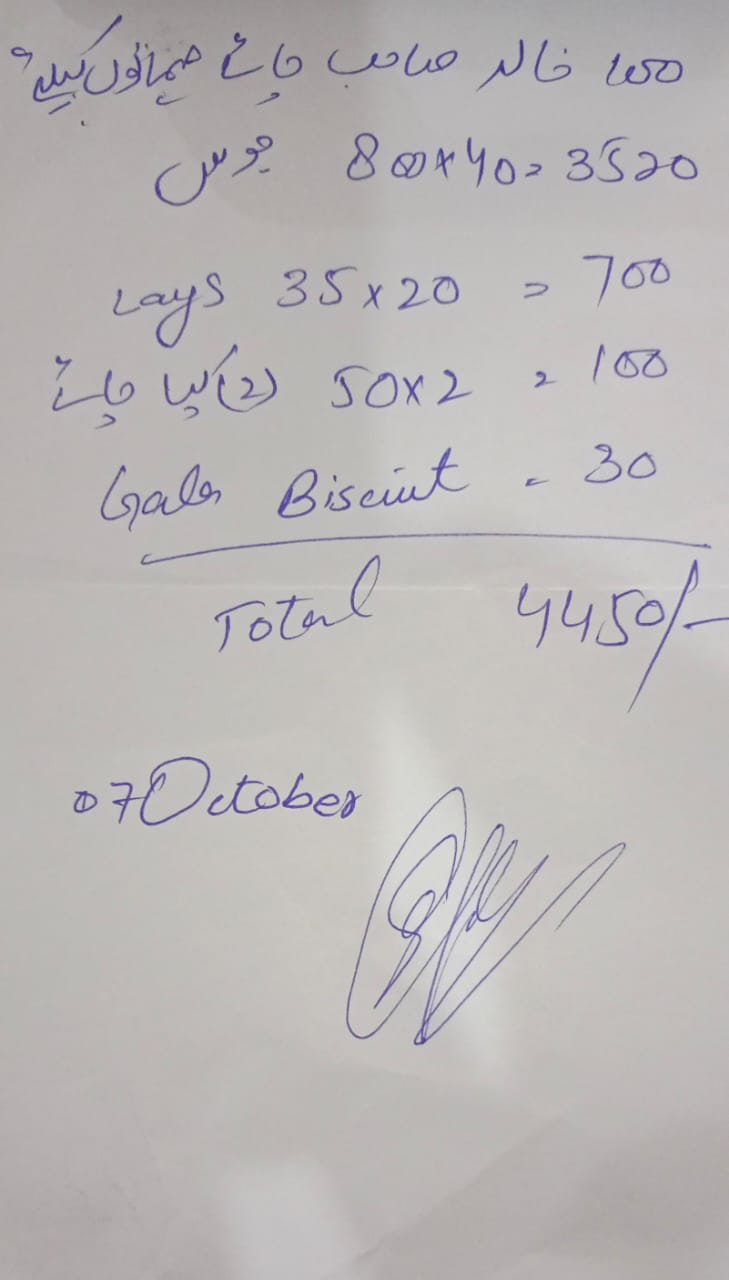 100 خالد صاحب چائے مہمانوں کیلئے
جوس 80×40=3520
Lays 35×20 = 700
(2) کپ چائے 50×2 = 100
Gala Biscuit = 30
Total 4450/-
07 October